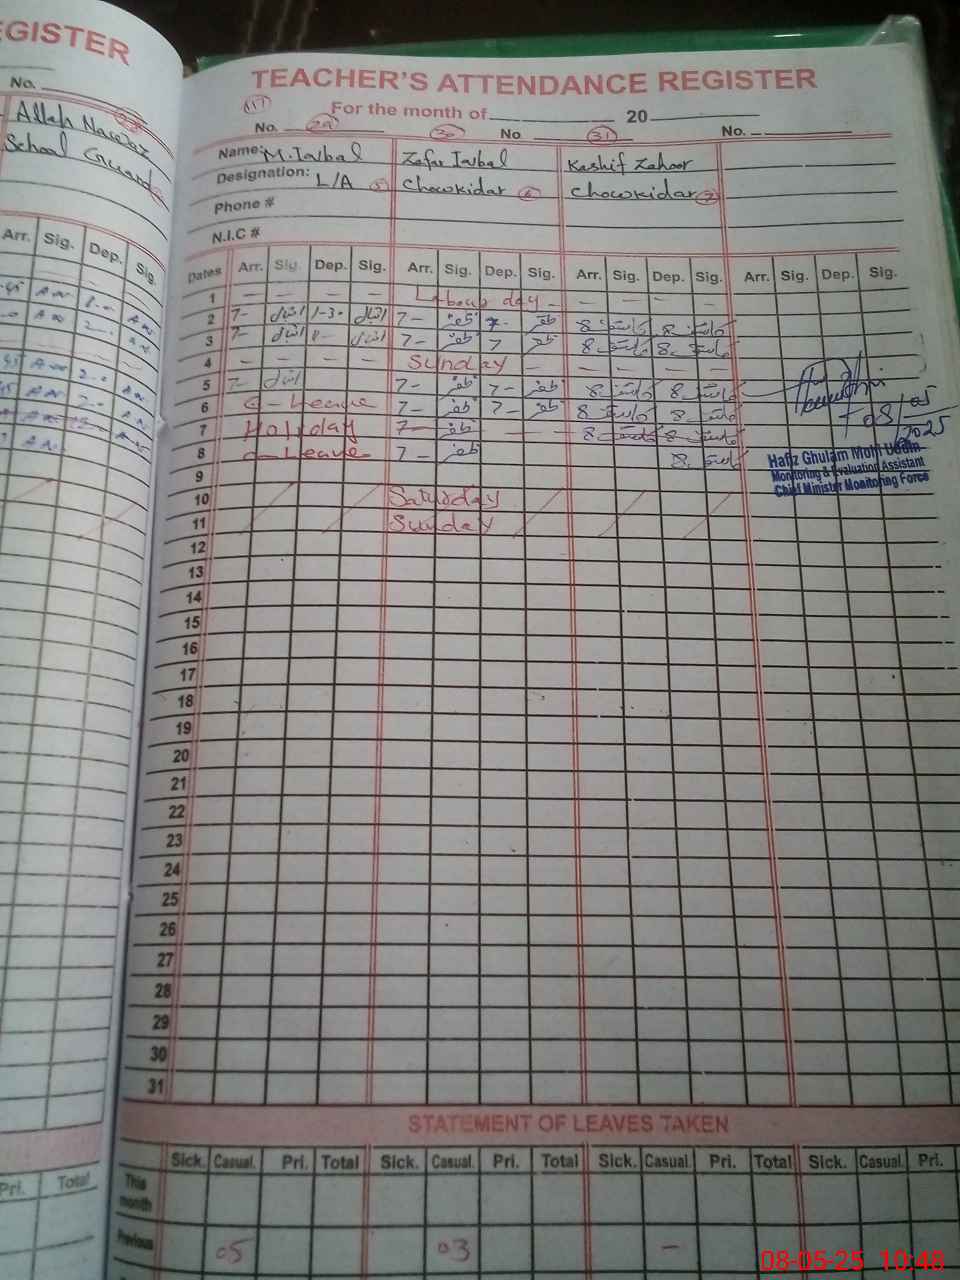 EGISTER
No.
Allah Nawaz
School Guard
Arr. Sig. Dep. Sig.
TEACHER'S ATTENDANCE REGISTER
117 For the month of 20
No. 29 30 No 31 No.
Name: M. Iqbal Zafar Iqbal Kashif Zahoor
Designation: L/A 5 Chowkidar 6 Chowkidar 7
Phone #
N.I.C #
Dates Arr. Sig. Dep. Sig. Arr. Sig. Dep. Sig. Arr. Sig. Dep. Sig. Arr. Sig. Dep. Sig.
1 – – – – Labour day – – – – –
2 7- اقبال 1-30 اقبال 7- ظفر 7- ظفر 8 کاشف 8 کاشف
3 7- اقبال اقبال 7- ظفر 7 ظفر 8 کاشف 8 کاشف
4 – – – – Sunday – – – – –
5 7- اقبال 7- ظفر 7- ظفر 8 کاشف 8 کاشف
6 C-Leave 7- ظفر 7- ظفر 8 کاشف 8 کاشف
7 Holiday 7- ظفر – – 8 کاشف 8 کاشف
8 C-Leave 7- ظفر 8 کاشف
9
10 Saturday
11 Sunday
12
13
14
15
16
17
18
19
20
21
22
23
24
25
26
27
28
29
30
31
08/05/2025
Hafiz Ghulam Mohi Uddin
Monitoring & Evaluation Assistant
Chief Minister Monitoring Force
STATEMENT OF LEAVES TAKEN
Pri. Total
Sick. Casual. Pri. Total Sick. Casual. Pri. Total Sick. Casual. Pri. Total Sick. Casual. Pri.
This month
Previous 05 03 –
08-05-25 10:48